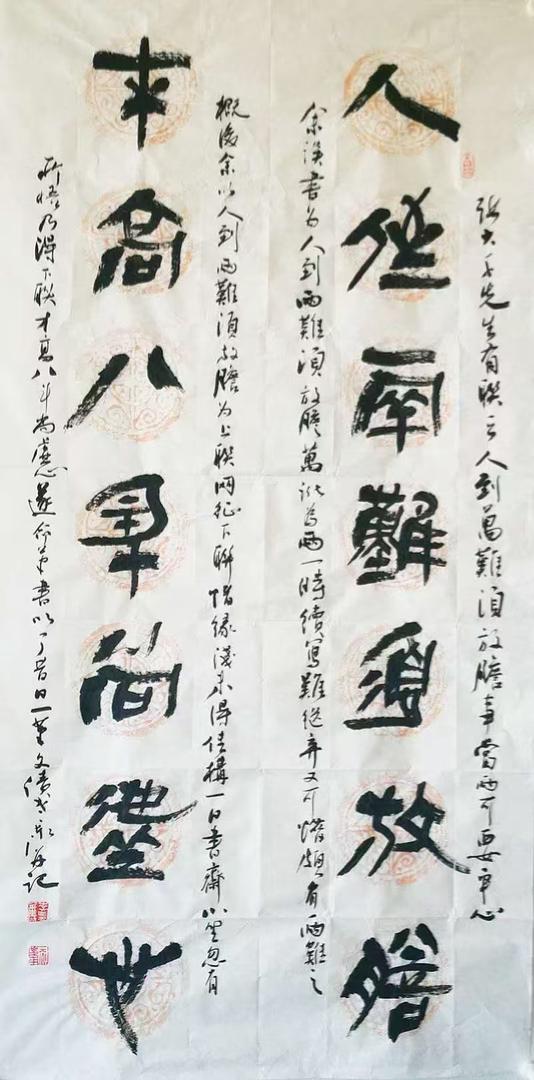 張大千先生有聯云人到萬難須放膽事當兩可要平心
人到兩難須放膽
余誤書为人到兩難須放膽萬訛为兩一時續寫難從棄又可惜頗有兩難之
概後余以人到兩難須放膽为上聯网征下聯惜緣淺未得佳構一日書齋小坐忽有
才高八斗尚虛心
所悟乃得下聯才高八斗尚虛心遂命筆書以了昔日一筆文債 记